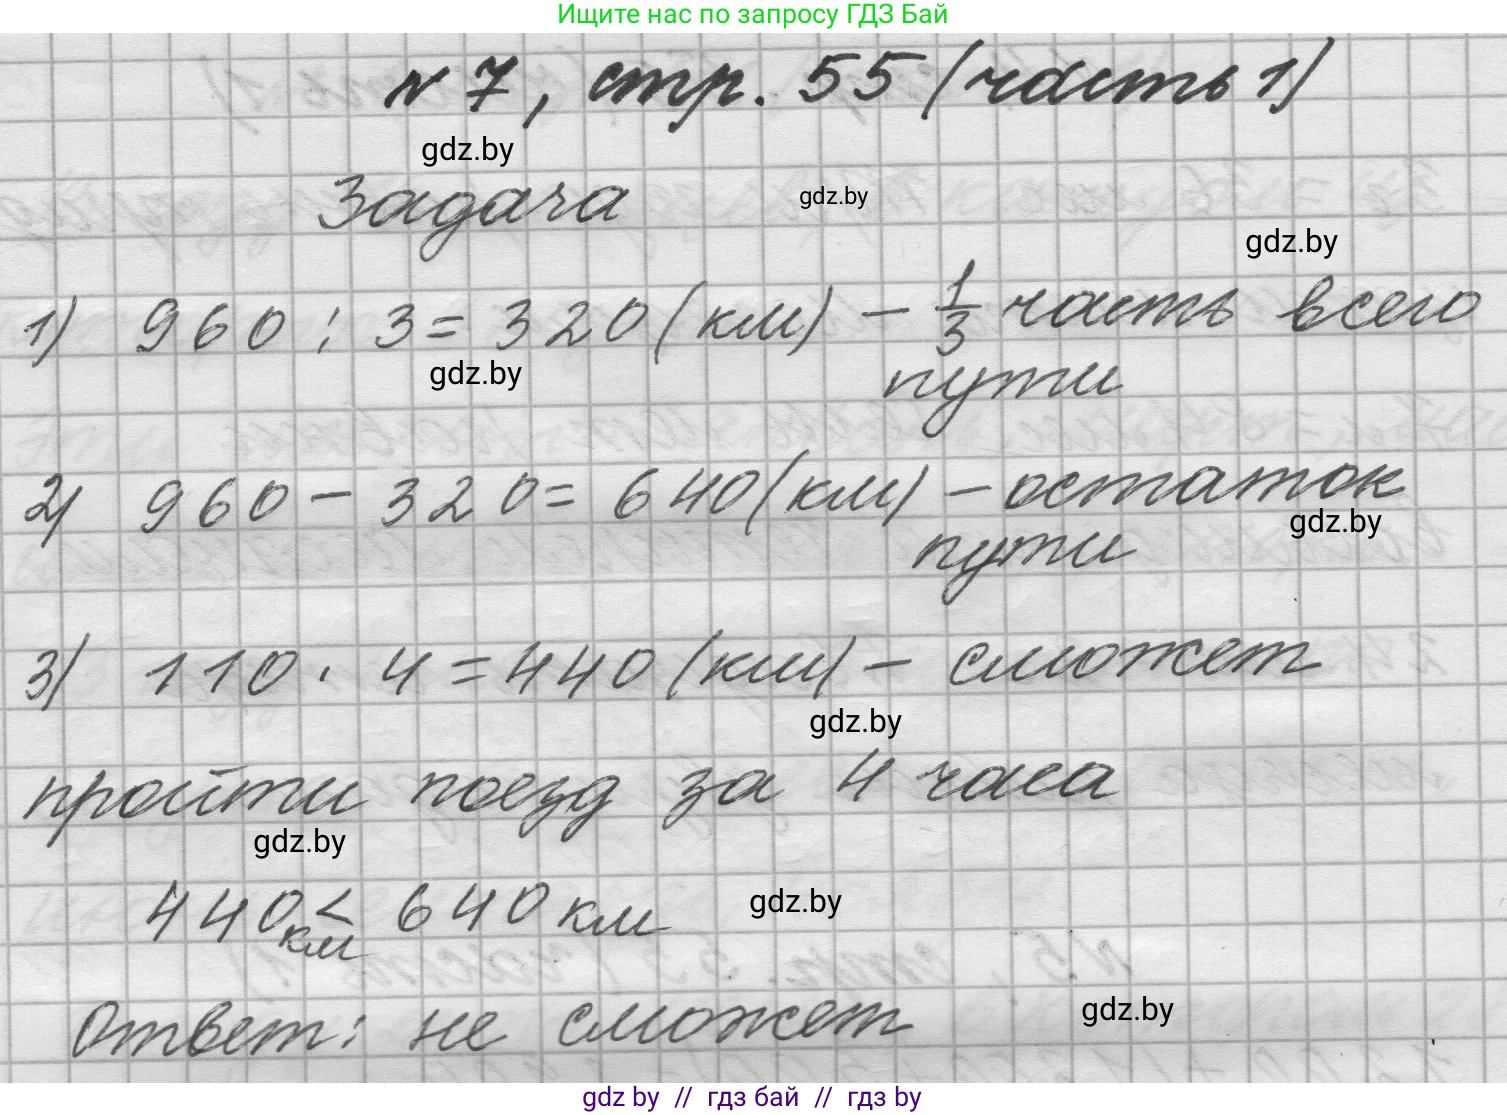 Ищите нас по запросу ГДЗ Бай
№ 7, стр. 55 (часть 1)
gdz.by
Задача
gdz.by
gdz.by
1) 960 : 3 = 320 (км) – 1/3 часть всего
gdz.by
пути
2) 960 – 320 = 640 (км) – остаток
gdz.by
пути
3) 110 · 4 = 440 (км) – сможет
gdz.by
пройти поезд за 4 часа
gdz.by
440 км < 640 км
gdz.by
Ответ: не сможет
gdz.by
gdz by // гдз бай // гдз by